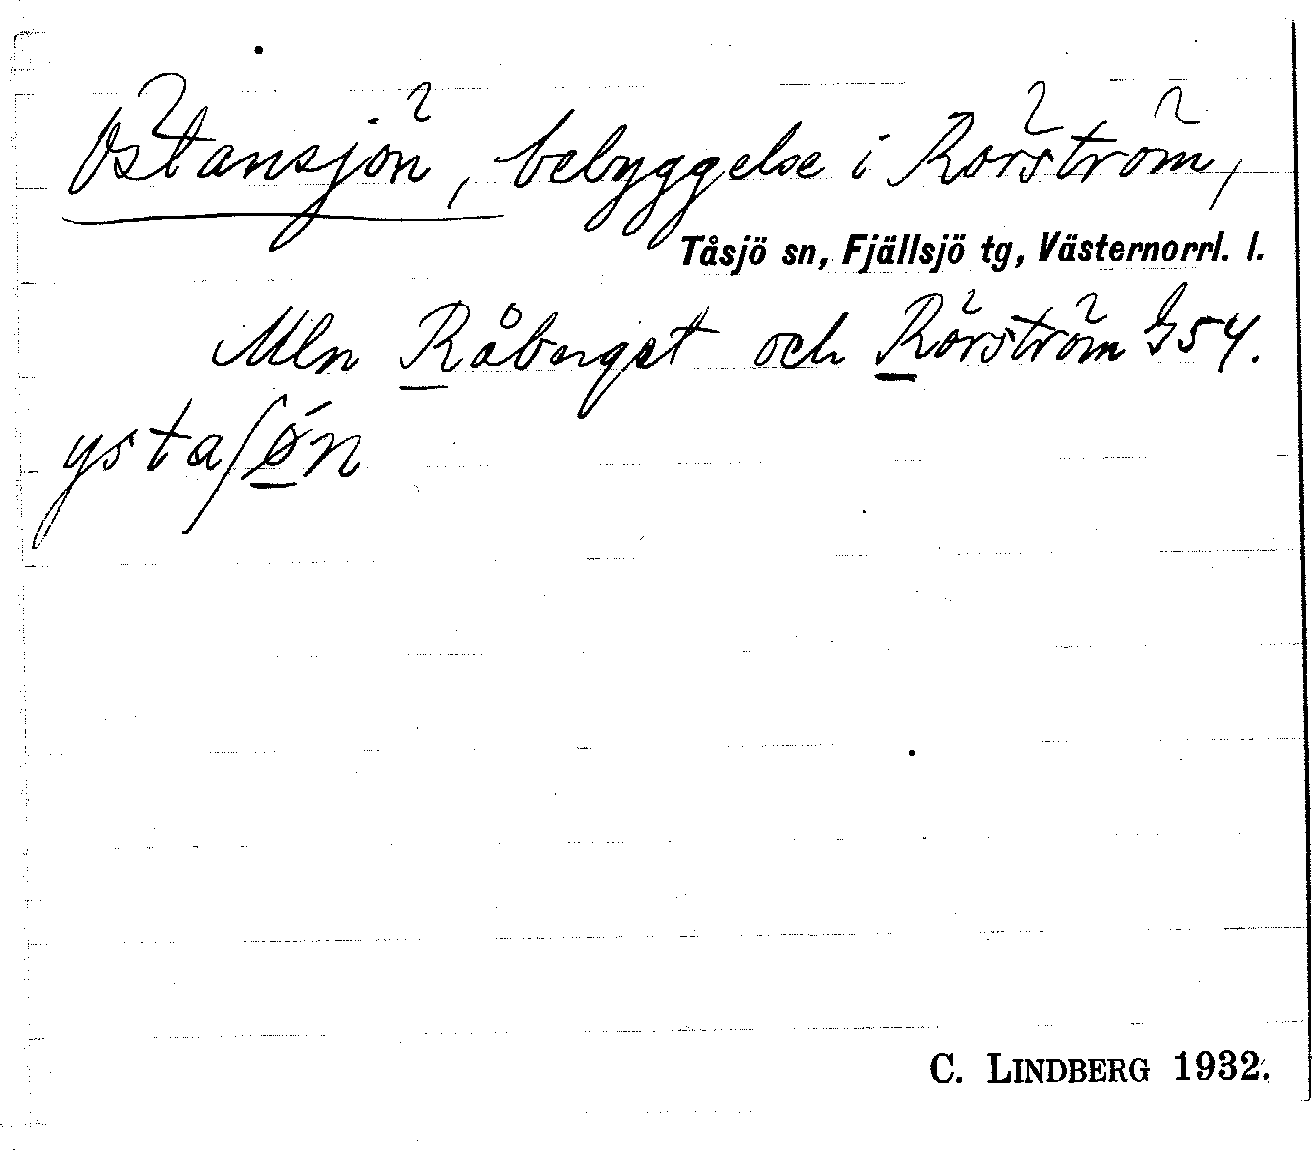 Östansjön, bebyggelse i Rörström,
Tåsjö sn, Fjällsjö tg, Västernorrl. l.
Mln Råberget och Rörström G54.
ystaʃǿ̲n
C. LINDBERG 1932.